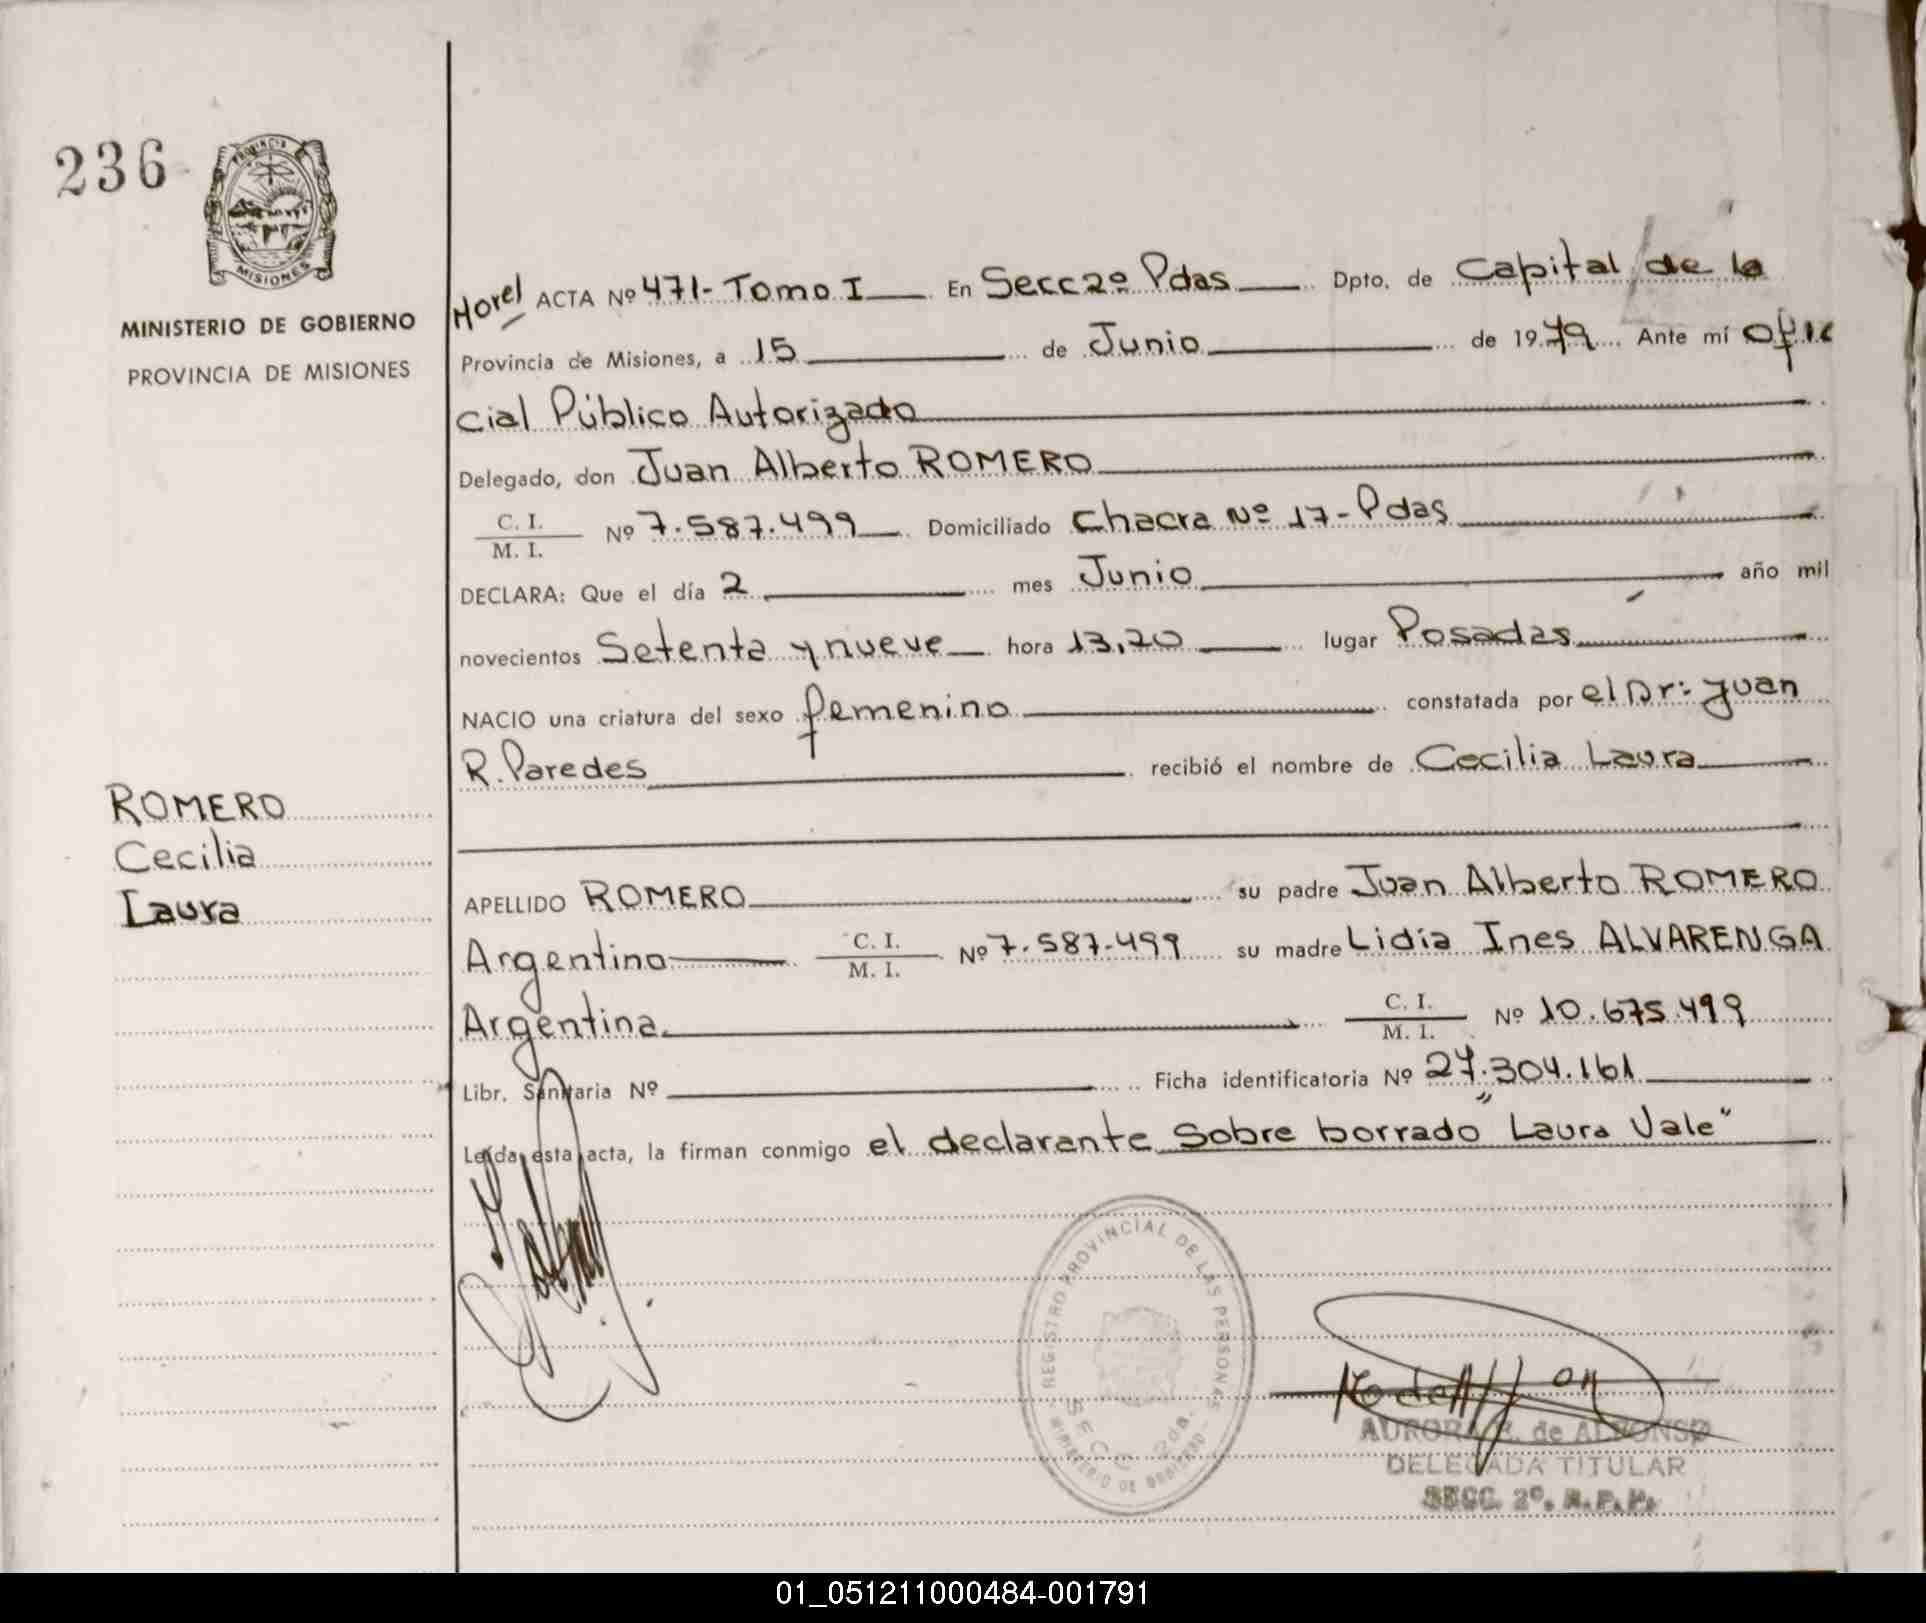 236
PROVINCIA
MISIONES
MINISTERIO DE GOBIERNO
PROVINCIA DE MISIONES
ROMERO
Cecilia
Laura
Morel ACTA Nº 471- Tomo I En Secc 2º Pdas Dpto. de Capital de la
Provincia de Misiones, a 15 de Junio de 1979 Ante mí Ofi
cial Público Autorizado
Delegado, don Juan Alberto ROMERO
C. I.
M. I. Nº 7.587.499 Domiciliado Chacra Nº 17- Pdas
DECLARA: Que el día 2 mes Junio año mil
novecientos Setenta y nueve hora 13,20 lugar Posadas
NACIO una criatura del sexo femenino constatada por el Dr: Juan
R. Paredes recibió el nombre de Cecilia Laura
APELLIDO ROMERO su padre Juan Alberto ROMERO
Argentino C. I.
M. I. Nº 7.587.499 su madre Lidia Ines ALVARENGA
Argentina C. I.
M. I. Nº 10.675.499
Libr. Sanitaria Nº Ficha identificatoria Nº 27.304.161
Leída esta acta, la firman conmigo el declarante Sobre borrado "Laura Vale"
REGISTRO PROVINCIAL DE LAS PERSONAS
SECC 2da.
MINISTERIO DE GOBIERNO
AURORA de ALFONSO
DELEGADA TITULAR
SECC. 2º. R.P.P.
01_051211000484-001791